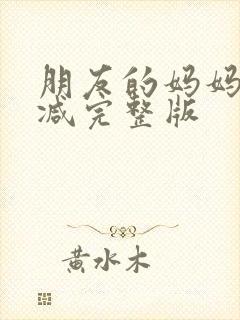 朋友的妈妈
减完整版
黄水木